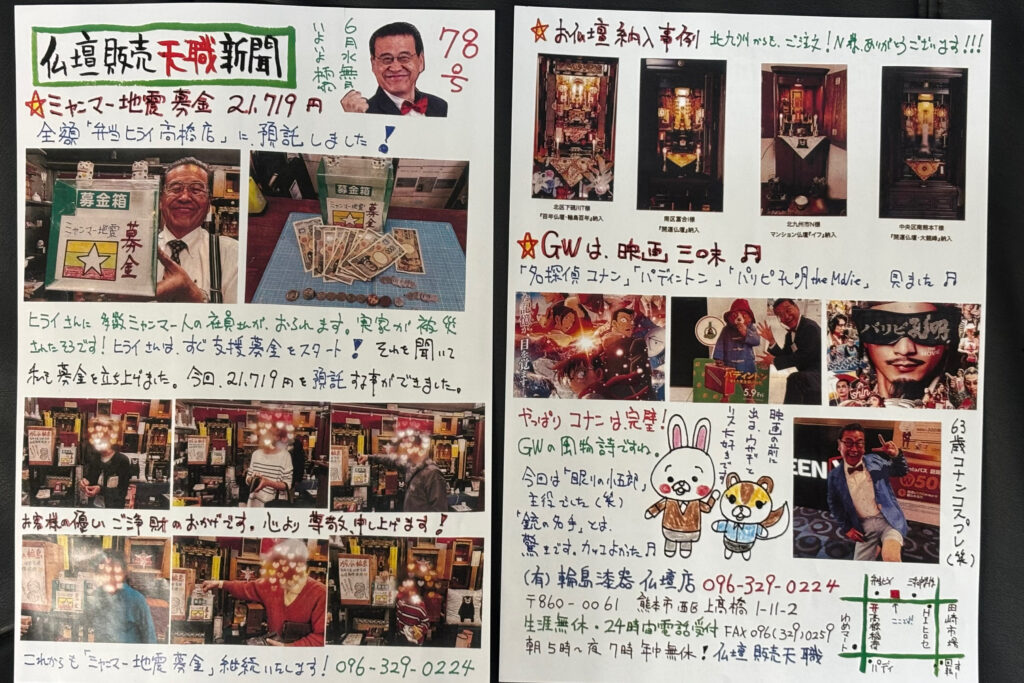 仏壇販売天職新聞
78号
☆ミャンマー地震募金 21,719円
全額「弁当ヒライ高橋店」に、預託しました!
募金箱
ミャンマー地震
募金
募金箱
ミャンマー地震
募金
ヒライさんに多数ミャンマー人の社員さんが、おられます。実家が被災
されたそうです!ヒライさんは、すぐ支援募金をスタート!それを聞いて
私も募金を立ち上げました。今回、21,719円を預託する事ができました。
お客様の優しいご浄財のおかげです。心より尊敬申し上げます!
これからも「ミャンマー地震募金」継続いたします!096-329-0224
☆お仏壇納入事例 北九州からも、ご注文!N様、ありがとうございます!!!
北区下硯川T様
『百年仏壇・輪島百年』納入
南区富合I様
『開運仏壇』納入
北九州市N様
マンション仏壇『イフ』納入
中央区南熊本T様
☆GWは、映画三昧♬
「名探偵コナン」「パディントン」「パリピ孔明the Movie」見ました♬
パディントン
5.9
パリピ孔明
やっぱりコナンは完璧!
GWの風物詩ですね。
今回は「眠りの小五郎」
主役でした(笑)
「銃の名手」とは、
驚きです。カッコよかった♬
映画の前に
出る、ウサギと
リス大好きです
63歳コナンコスプレ(笑)
(有)輪島漆器仏壇店 096-329-0224
〒860-0061 熊本市西区上高橋1-11-2
生涯無休・24時間電話受付 FAX096(329)0259
朝5時〜夜7時年中無休!仏壇販売天職
ゆめマート
ここ
田崎市場